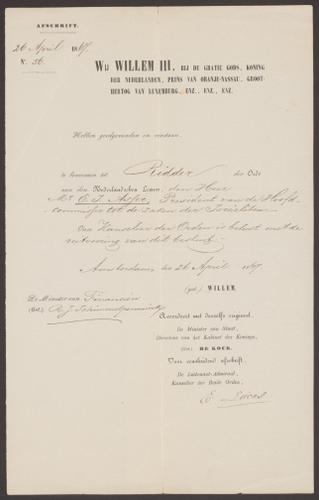 AFSCHRIFT.
26 April 1867.
N.º 56.
WIJ WILLEM III, BIJ DE GRATIE GODS, KONING
DER NEDERLANDEN, PRINS VAN ORANJE-NASSAU, GROOT-
HERTOG VAN LUXEMBURG, ENZ., ENZ., ENZ.
Hebben goedgevonden en verstaan:
te benoemen tot Ridder der Orde
van den Nederlandschen Leeuw, den Heer
Mr. E. J. Asser, President van de Hoofd-
commissie tot de zaken der Israeliten.
Den Kanselier der Orden is belast met de
uitvoering van dit besluit.
Amsterdam, den 26 April 1867.
(get.) WILLEM.
De Minister van Financiën
(Get.) R. J. Schimmelpenninck
Accordeert met deszelfs origineel.
De Minister van Staat,
Directeur van het Kabinet des Konings,
(Get.) DE KOCK.
Voor eensluidend afschrift.
De Luitenant-Admiraal,
Kanselier der Beide Orden,
E. Lucas